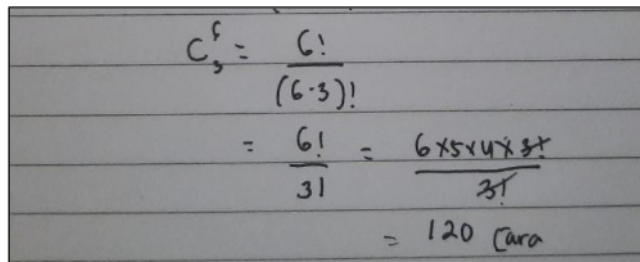 C₃⁶ = 6! / (6-3)!
= 6! / 3! = 6×5×4×3! / 3!
= 120 Cara